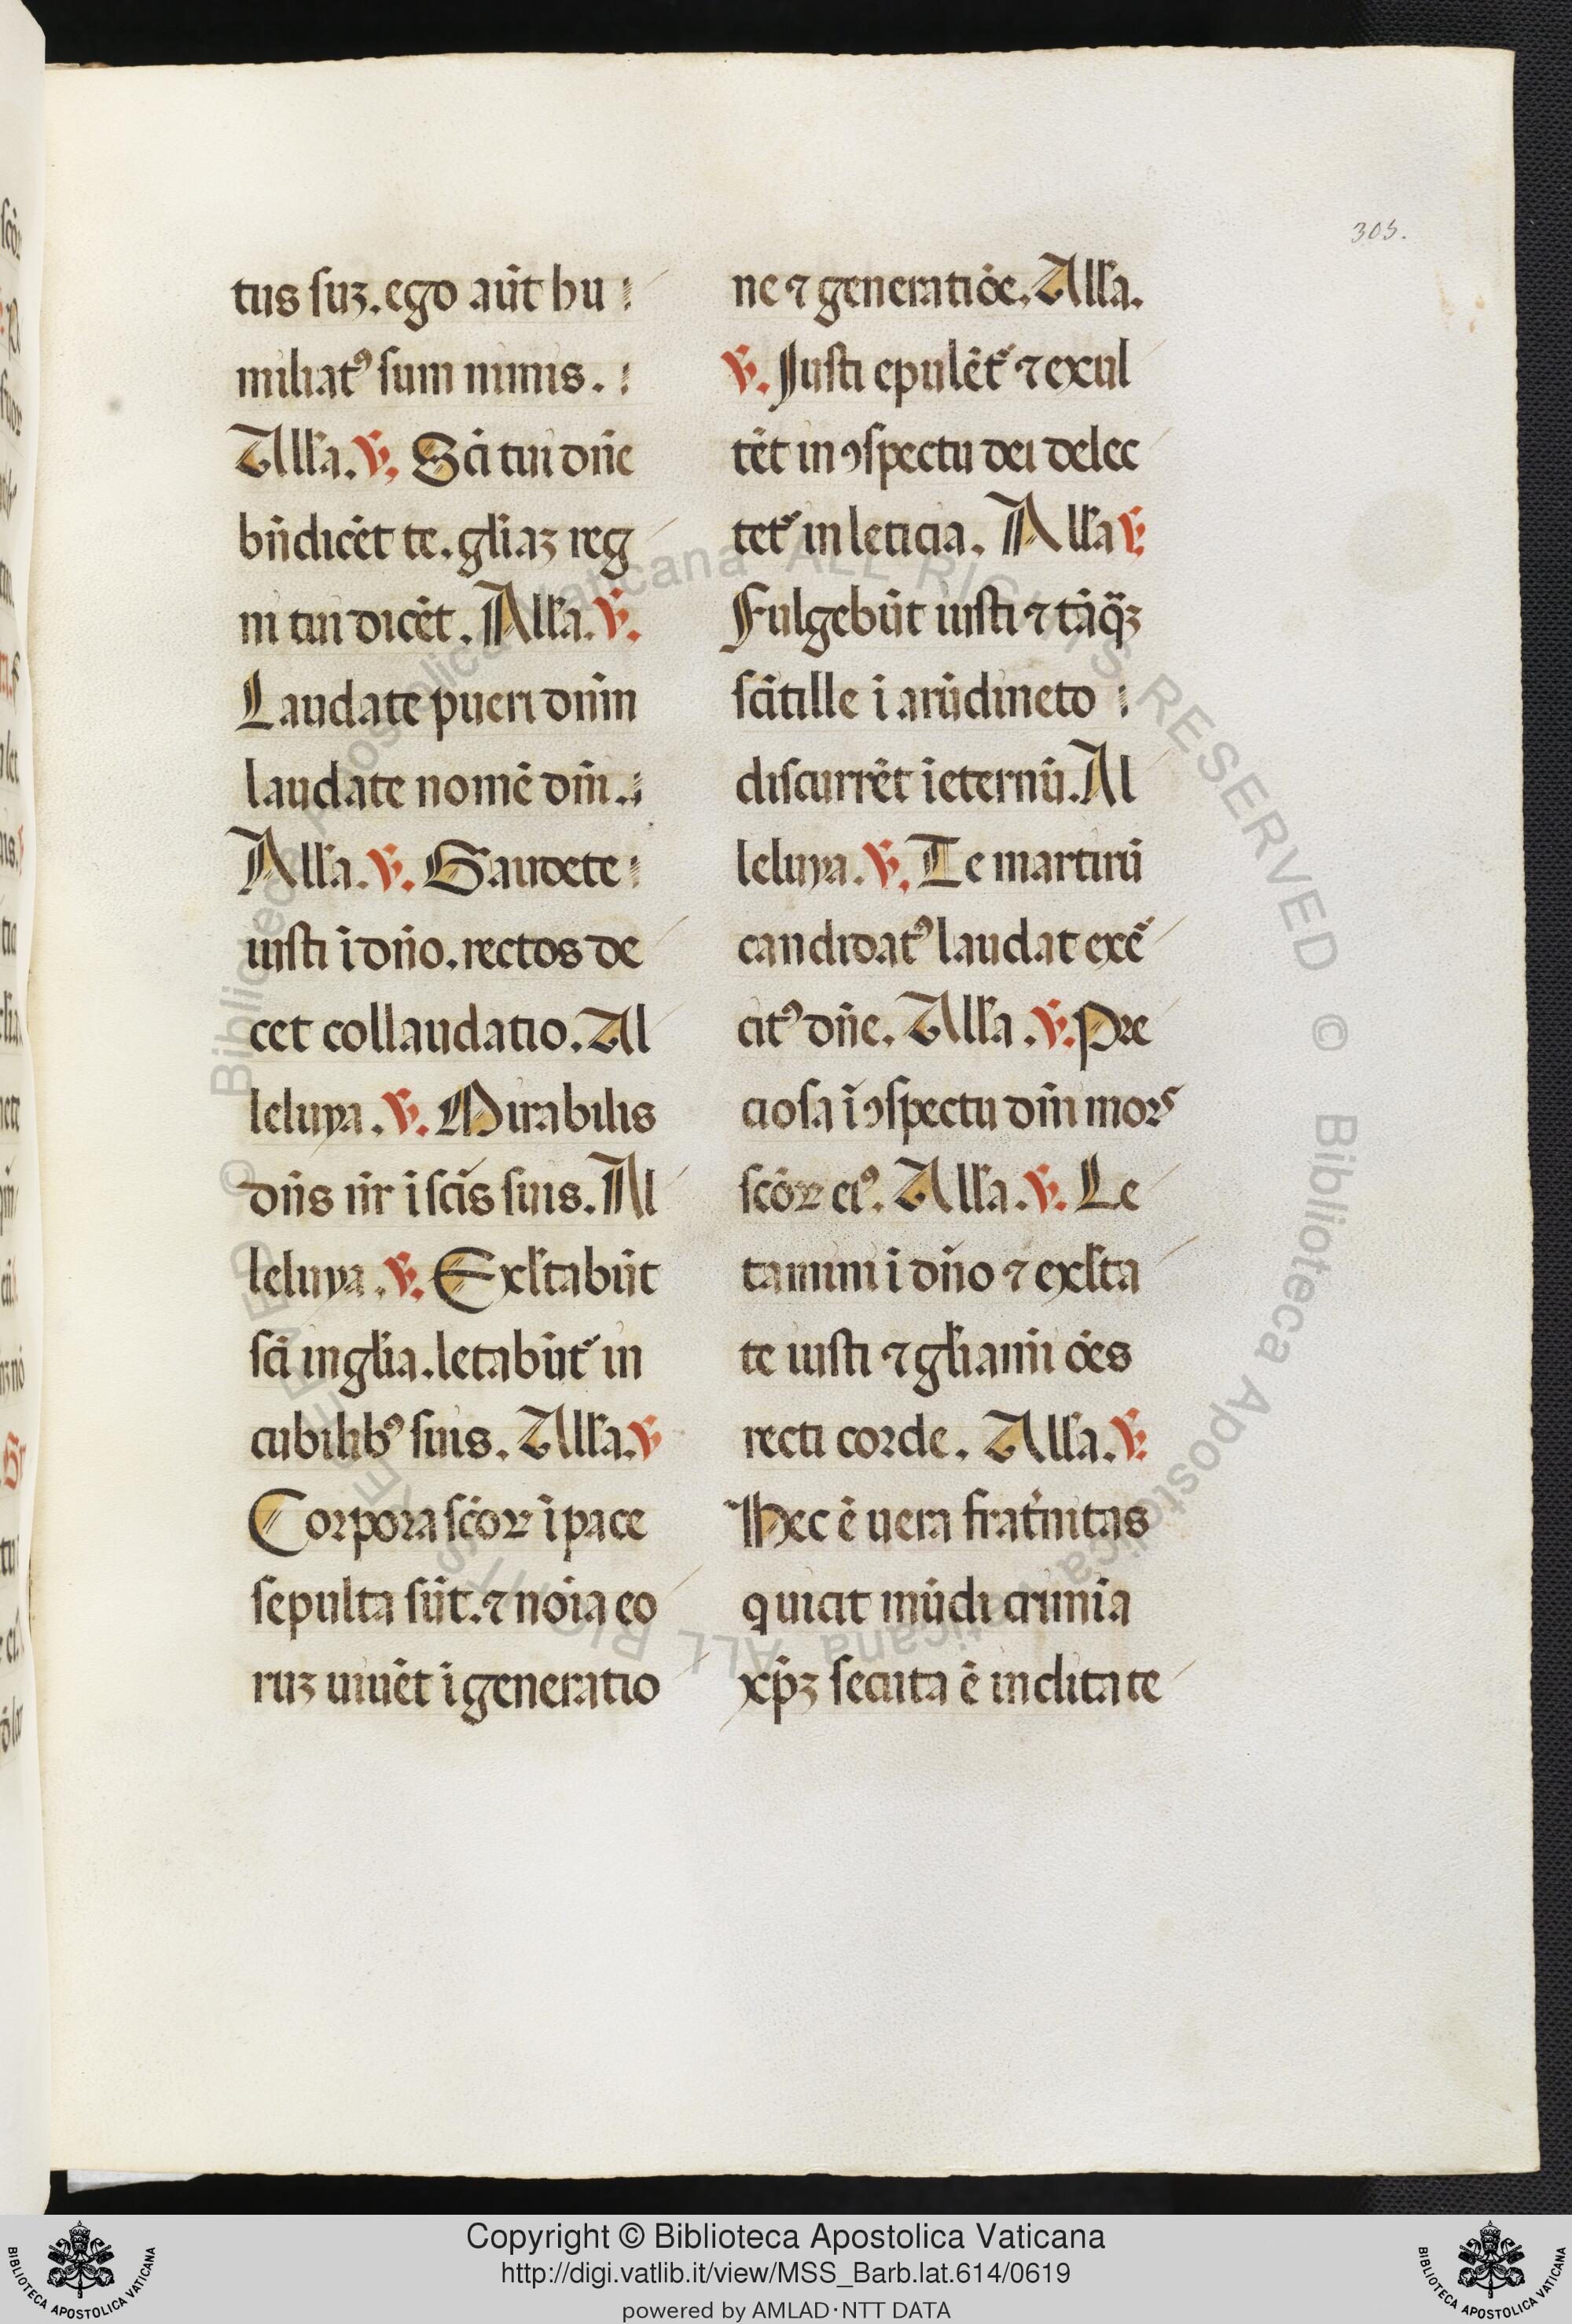 303.
tus suꝫ. ego aūt hu
miliatꝰ sum nimis.
All'a. ℣. Sc̄i tui dn̄e
bn̄dicēt te. gl'iaꝫ reg
ni tui dicēt. All'a. ℣.
Laudate pueri dn̄m
laudate nomē dn̄i.
All'a. ℣. Gaudete
iusti ī dn̄o. rectos de
cet collaudatio. Al
leluya. ℣. Mirabilis
dn̄s nr̄ ī sc̄is suis. Al
leluya. ℣. Exl'tabūt
sc̄i in gl'ia. letabūt᷑ in
cubilibꝰ suis. All'a. ℣
Corpora sc̄oꝝ ī pace
sepulta sūt. ⁊ nōīa eo
ruꝫ uiuēt ī generatio
ne ⁊ generatiōe. All'a.
℣. Iusti epulēt᷑ ⁊ exul
tēt in ꝯspectu dei delec
tet᷑ in leticia. All'a ℣.
Fulgebūt iusti ⁊ tāq̄ꝫ
scītille ī arūdineto
discurrēt ī eternū. Al
leluya. ℣. Te martirū
candidatꝰ laudat exē
citꝰ dn̄e. All'a. ℣. Pre
ciosa ī ꝯspectu dn̄i mors
sc̄oꝝ eiꝰ. All'a. ℣. Le
tamini ī dn̄o ⁊ exl'ta
te iusti ⁊ gl'iamī ōēs
recti corde. All'a. ℣.
Hec ē uera frat'nitas
q uicit mūdi crimīa
xp̄ꝫ secuta ē inclita te
Copyright © Biblioteca Apostolica Vaticana
http://digi.vatlib.it/view/MSS_Barb.lat.614/0619
powered by AMLAD·NTT DATA
BIBLIOTECA APOSTOLICA VATICANA
BIBLIOTECA APOSTOLICA VATICANA